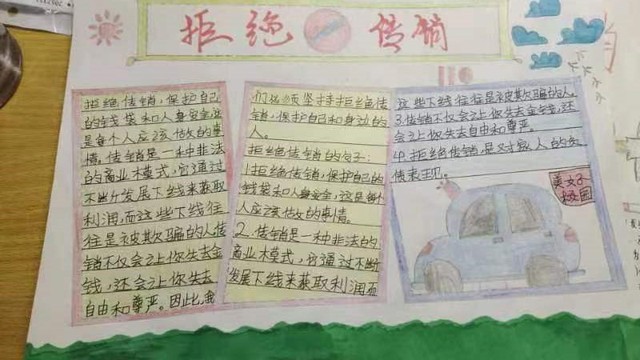 拒绝传销
拒绝传销,保护自己
的钱袋和人身安全,这
是每个人应该做的事
情。传销是一种非法
的商业模式,它通过
不断发展下线来获取
利润,而这些下线往
往是被欺骗的人。传
销不仅会让你失去金
钱,还会让你失去
自由和尊严。因此,我
们必须坚持拒绝传
销,保护自己和身边的
人。
拒绝传销的句子:
1.拒绝传销,保护自己的
钱袋和人身安全,这是每个
人应该做的事情。
2.传销是一种非法的
商业模式,它通过不断
发展下线来获取利润而
这些下线往往是被欺骗的人。
3.传销不仅会让你失去金钱,还
会让你失去自由和尊严。
4.拒绝传销,是对家人的
美好
校园